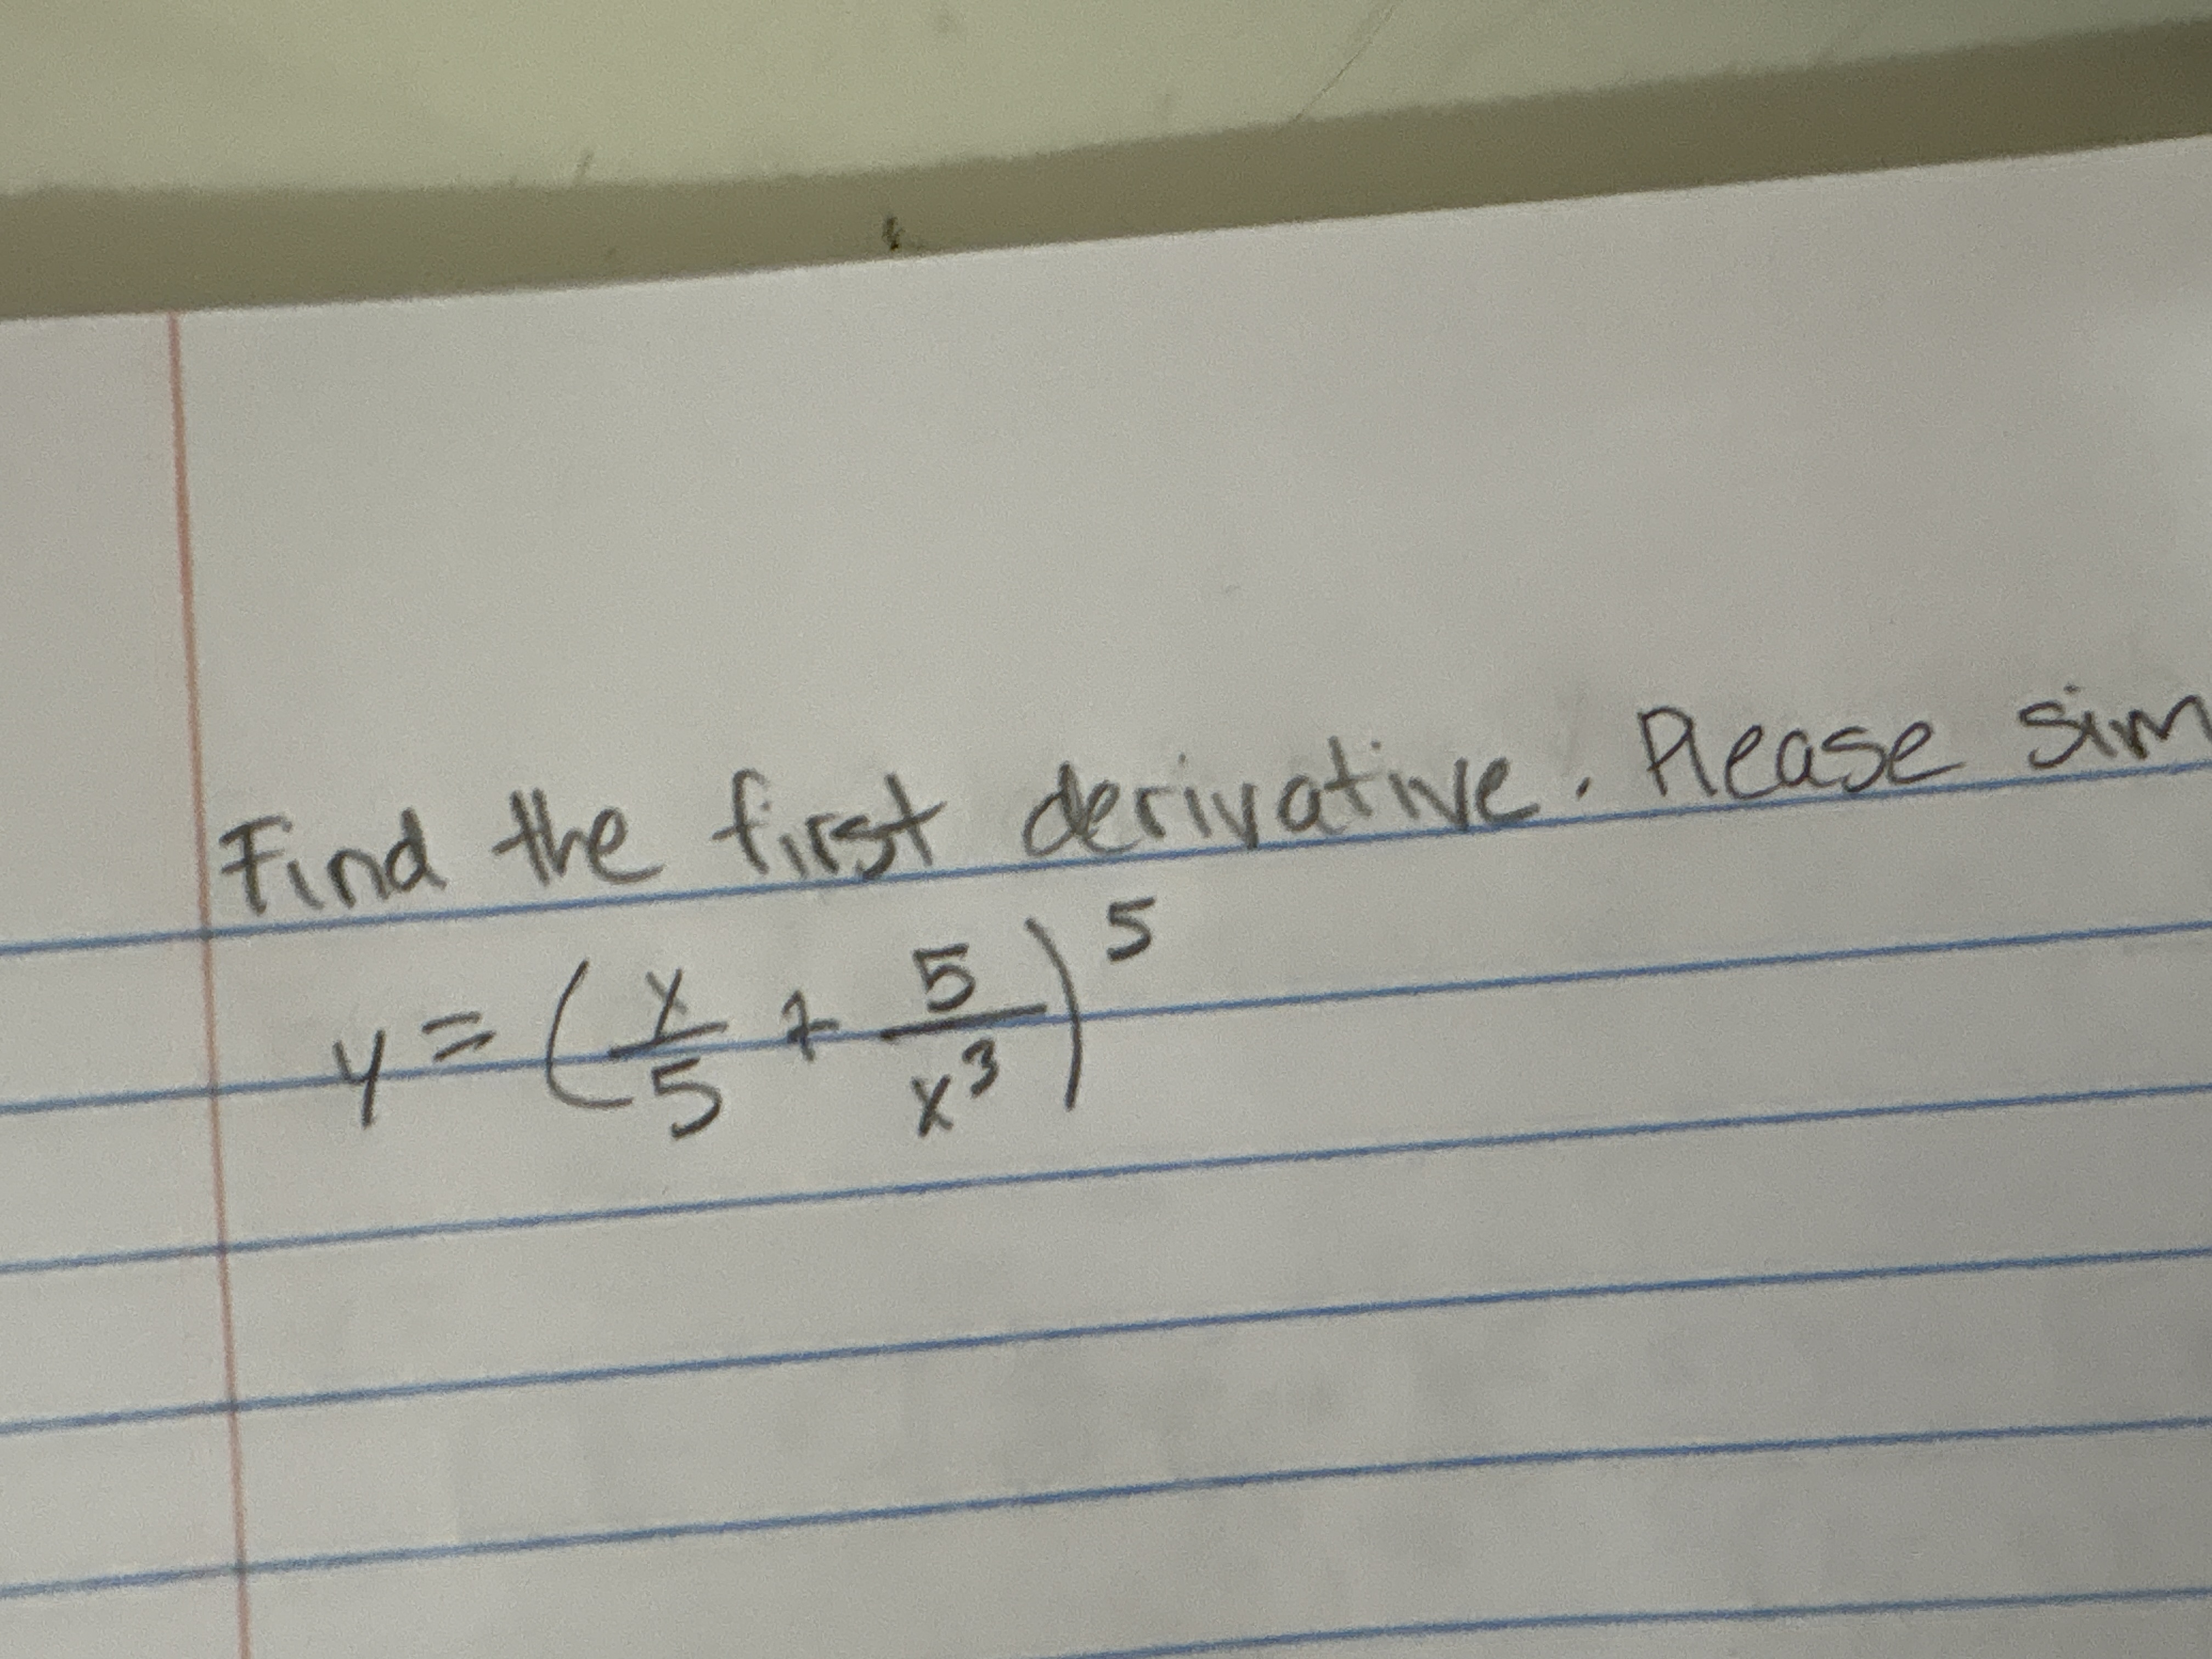 Find the first derivative. Please sim
y = (x/5 + 5/x³)⁵